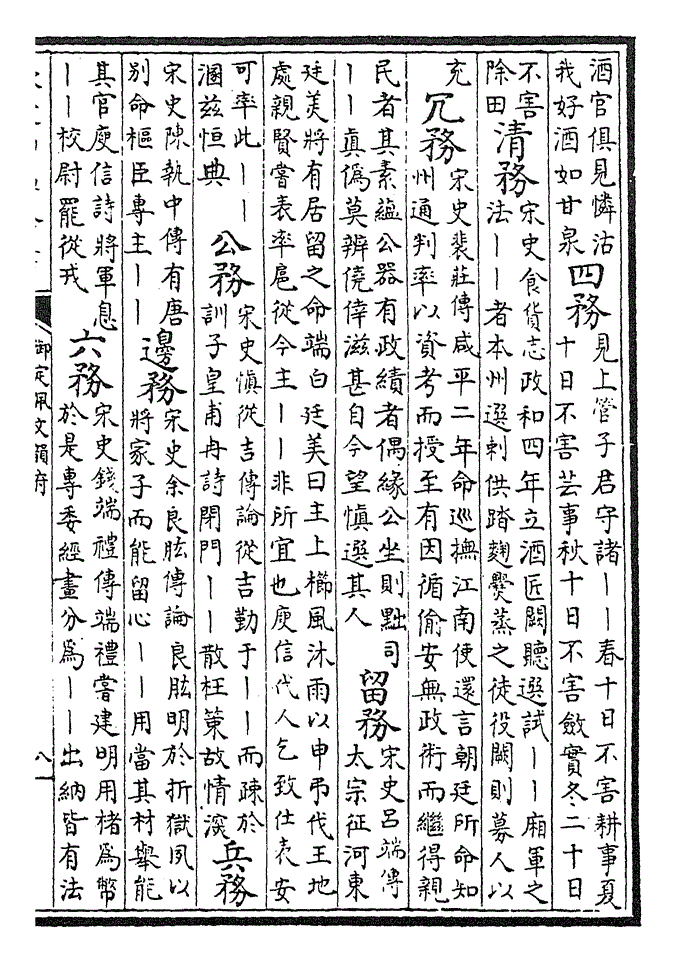 酒官俱見憐沽
我好酒如甘泉
四務
見上管子君守諸丨丨春十日不害耕事夏
十日不害芸事秋十日不害斂實冬二十日
不害
除田
清務
宋史食貨志政和四年立酒匠闕聽選試丨丨廂軍之
法丨丨者本州選刺供踏麴爨蒸之徒役闕則募人以
充
冗務
宋史裴莊傳咸平二年命巡撫江南使還言朝廷所命知
州通判率以資考而授至有因循偷安無政術而繼得親
民者其素蘊公器有政績者偶緣公坐則黜司
丨丨真偽莫辨僥倖滋甚自今望慎選其人
留務
宋史呂端傳
太宗征河東
廷美將有居留之命端白廷美曰主上櫛風沐雨以申弔伐王地
處親賢當表率扈從今主丨丨非所宜也庾信代人乞致仕表安
可率此丨丨
溷兹恒典
公務
宋史慎從吉傳論從吉勤于丨丨而疎於
訓子皇甫冉詩閉門丨丨散枉策故情深
兵務
宋史陳執中傳有唐
別命樞臣專主丨丨
邊務
宋史余良肱傳論良肱明於折獄夙以
將家子而能留心丨丨用當其材舉能
其官庾信詩將軍息
丨丨校尉罷從戎
六務
宋史錢端禮傳端禮嘗建明用楮為幣
於是專委經畫分為丨丨出納皆有法
御定佩文韻府